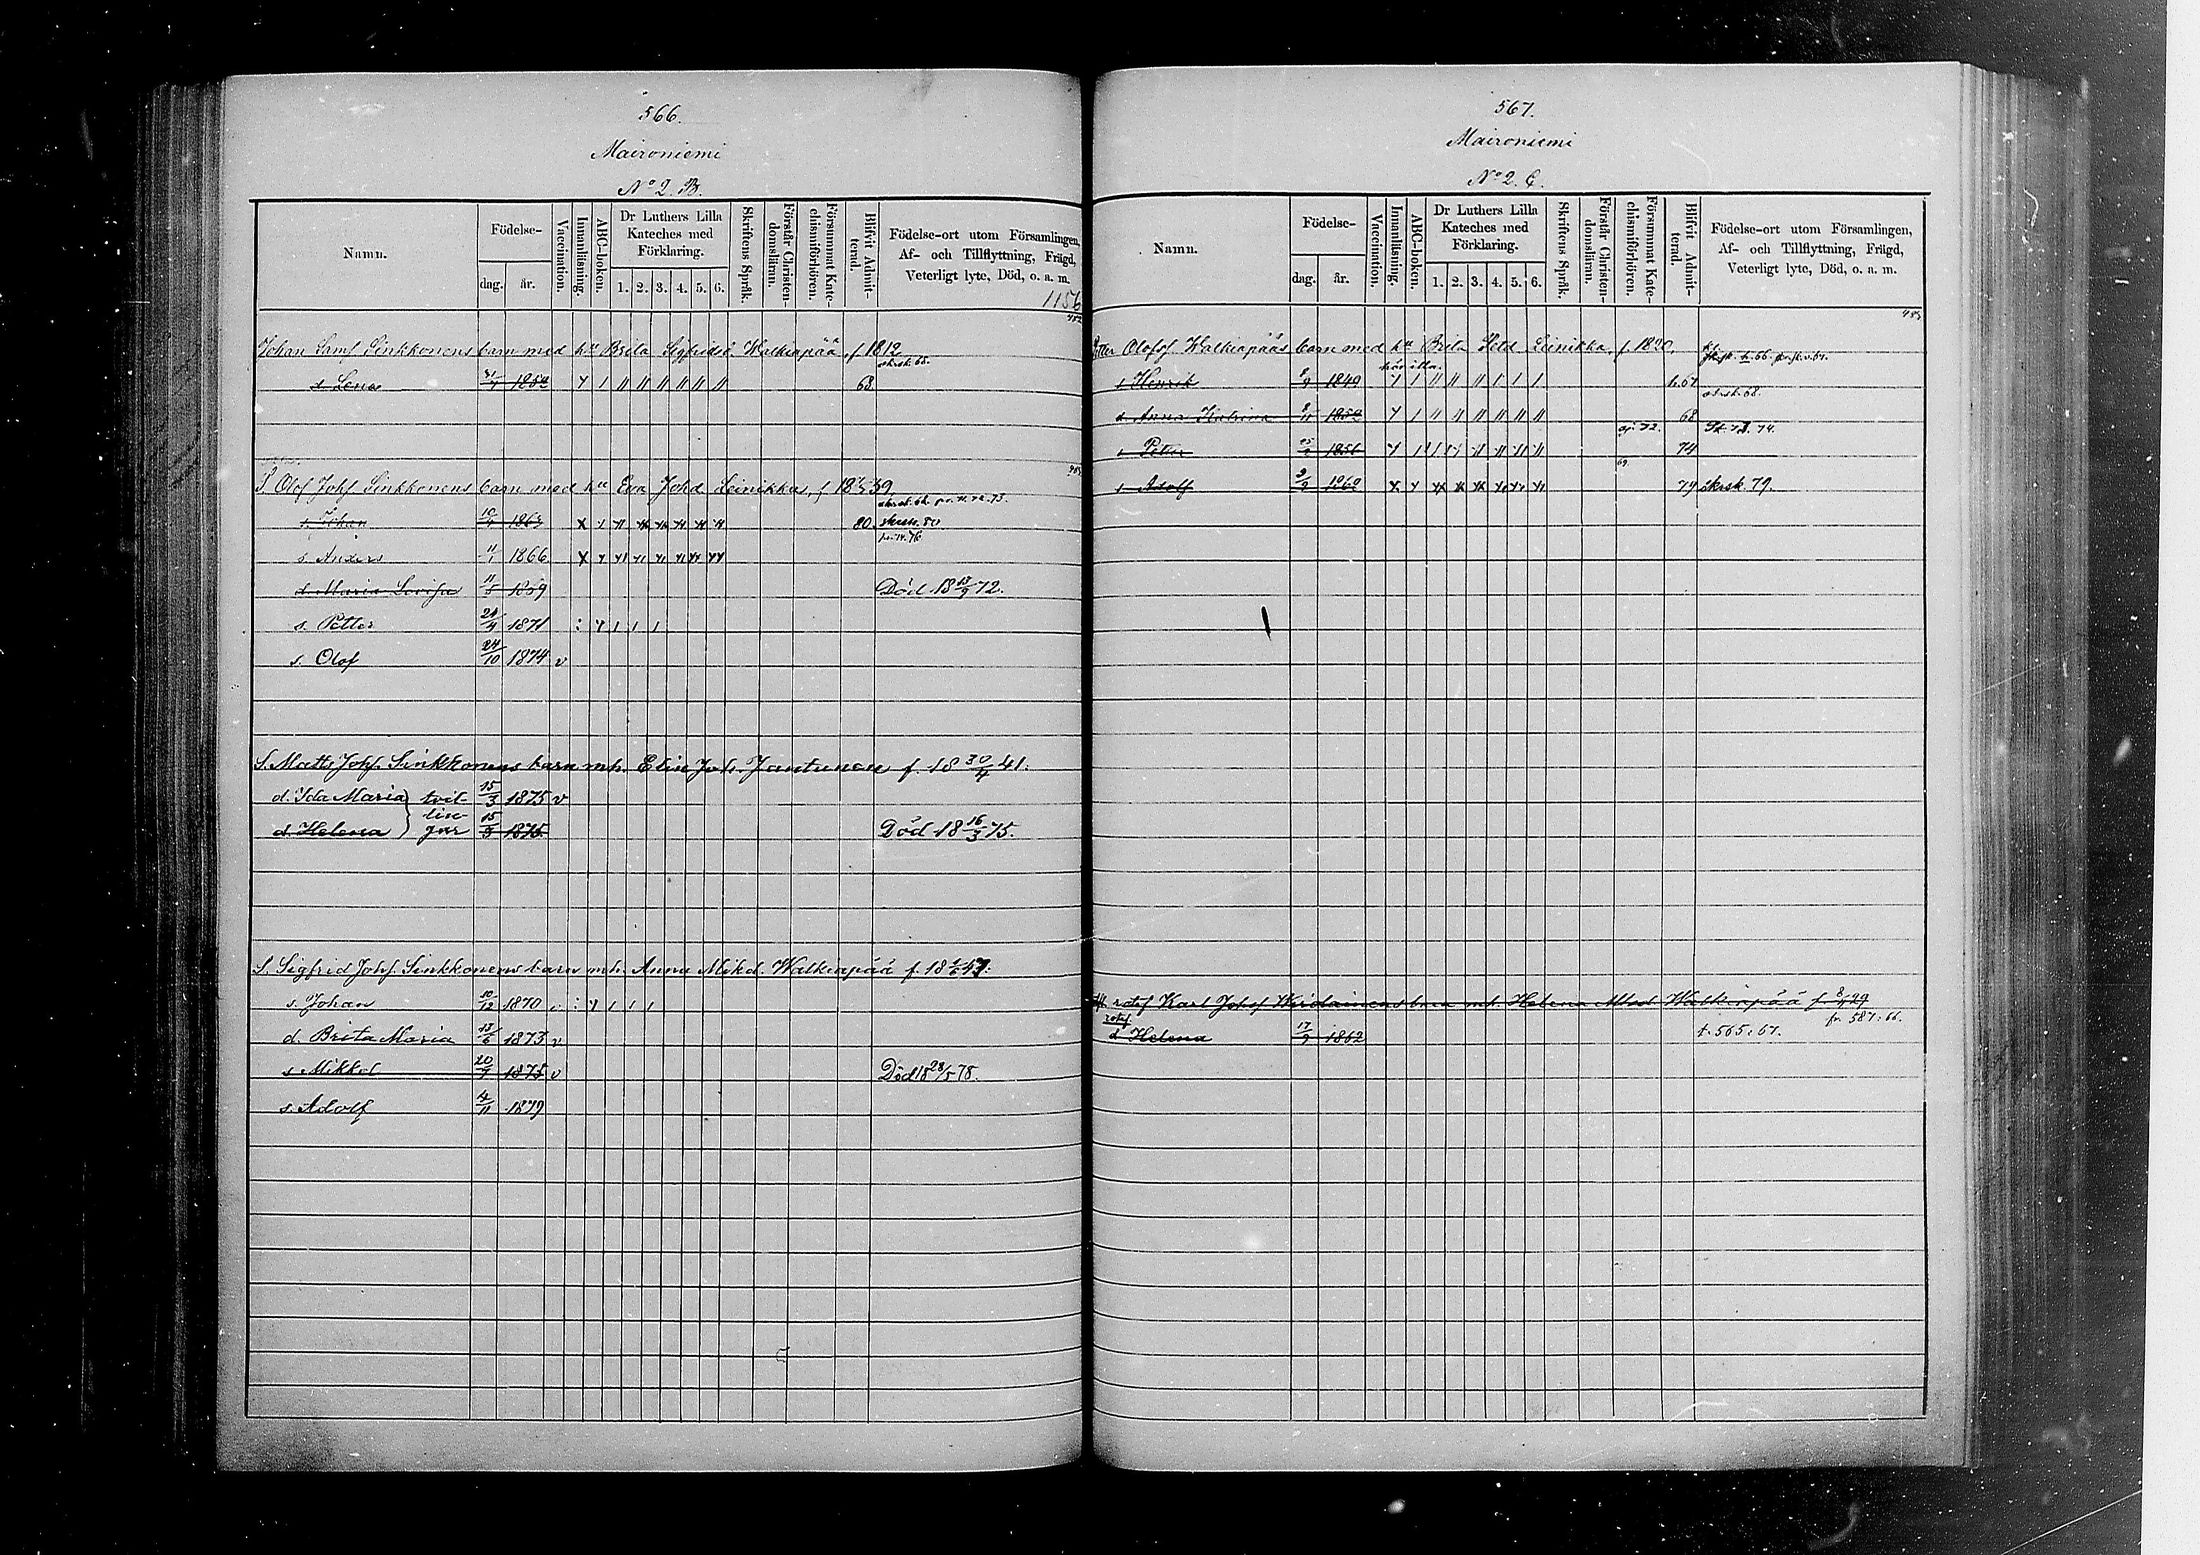 566.
Maironiemi
No 2. B.
Namn.
Födelse-
dag.
år.
Vaccination.
Innanläsning.
ABC-boken.
Dr Luthers Lilla
Kateches med
Förklaring.
1. 2. 3. 4. 5. 6.
Skriftens Språk.
Förstår Christen-
domsläran.
Försummat Kate-
chismiförhören.
Blifvit Admit-
terad.
Födelse-ort utom Församlingen,
Af- och Tillflyttning, Frägd,
Veterligt lyte, Död, o. a. m.
1156
482
Johan Saml Sinkkonens barn med hu Brita Sigfridsd. Walkiapää, f 1812
s. Lena 1852 68.
483
S. Olof Johs Sinkkonens barn med hu Eva Johd Leinikka, f 39
s. Johan 10/4 1863 80. skrsk. 80
s. Anders 11/1 1866.
d. Maria Lovisa 11/5 1869 Död. 18 18/9 72.
s. Petter 21/9 1871
s. Olof 24/10 1874 v
S. Matts Johs. Sinkkonens barn mh. Elin Joh. Jantunen f. 18 30/4 41.
d. Ida Maria tvil- 15/3 1875 v
lin-
d. Helena gar 15/3 1875. Död 18 16/3 75.
S. Sigfrid Johs. Sinkkonens barn mh. Anna Mikd. Walkiapää f. 18 1/6 47.
s. Johan 10/12 1870 v
d. Brita Maria 18/6 1873 v
s. Mikkel 20/9 1875 v Död 18 28/5 78.
s. Adolf 4/11 1879
567.
Maironiemi
No 2. C.
Namn.
Födelse-
dag.
år.
Vaccination.
Innanläsning.
ABC-boken.
Dr Luthers Lilla
Kateches med
Förklaring.
1. 2. 3. 4. 5. 6.
Skriftens Språk.
Förstår Christen-
domsläran.
Försummat Kate-
chismiförhören.
Blifvit Admit-
terad.
Födelse-ort utom Församlingen,
Af- och Tillflyttning, Frägd,
Veterligt lyte, Död, o. a. m.
483
Petter Olofsf Walkiapääs barn med hu Brita Leinikka, f 1820,
hör illa.
s Henrik 1849 67
skrsk. 68.
d. Anna Katrina 8/11 1852 68
72. 74.
s Peter 1856 74
69.
s. Adolf 9/2 1860 79 skrsk. 79.
rotef Karl Johsf Wirolainens barn mh. Helena Walkiapää f 29
rotef. fr. 587: 66.
d Helena 17/9 1862 t. 565: 67.